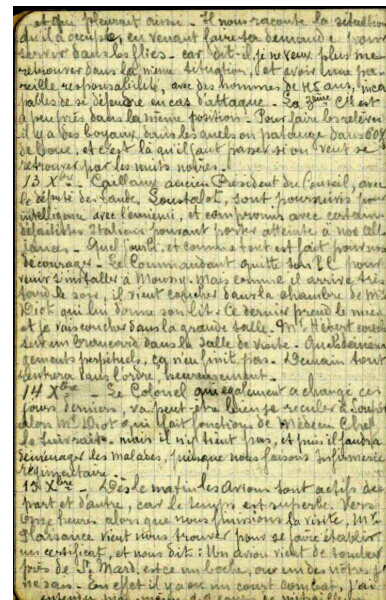 et qui pleurait aussi - Il nous raconte la situation
qu'il a occupée, en venant faire sa demande pour
servir dans les - car dit-il, je ne veux plus me
retrouver dans la même situation, et avoir une pa-
reille responsabilité, avec des hommes de 45 ans, inca-
pables de se défendre en cas d'attaque - La 3ème Cie est
à peu près dans la même position - Pour faire les relèves
il y a des boyaux dans lesquels on patauge dans
de boue, et c'est là qu'il faut passer si on veut se
retrouver par les nuits noires -
13 Xbre - Caillaux ancien Président du Conseil, avec
le député des Landes, Loustalot, sont poursuivis pour
intelligence avec l'ennemi, et compromis avec certains
défaitistes Italiens pouvant porter atteinte à nos alli-
ances - Quel , et comme tout est fait pour nous
décourager - Le Commandant quitte son P.C pour
venir s'installer à . Mais comme il arrive très
tard le soir, il vient coucher dans la chambre de Mr
Diot qui lui donne son lit. Ce dernier prend le mien
et je vais coucher dans la grande salle. Mr Hébert couche
sur un brancard dans la salle de visite. Quels déména-
gements perpétuels, ça n'en finit pas. Demain tout
rentrera dans l'ordre, heureusement.
14 Xbre - Le Colonel qui également a changé ces
jours derniers, va peut-être bien se reculer à
alors Mr Diot qui fait fonction de Médecin Chef
le suivrait - mais il n'y tient pas, et puis il faudra
déménager les malades, puisque nous faisons Infirmerie
régimentaire.
15 Xbre - Dès le matin les avions sont actifs de
part et d'autre, car le temps est superbe. Vers
onze heures alors que nous finissions la visite, Mr
Plaisance vient nous trouver pour se faire établir
un certificat, et nous dit : Un avion vient de tomber
près de St Mard, est-ce un boche, ou un des nôtres je
ne sais - En effet il y a eu un court combat, j'ai
entendu moi-même